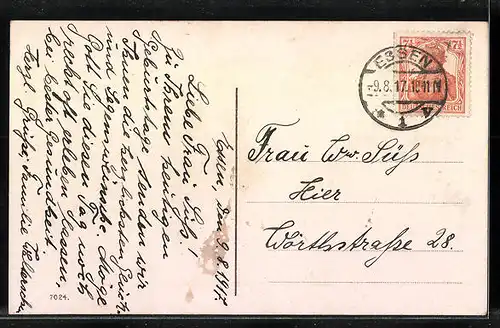 Essen, den 9.8.1917.
Liebe Frau Süß!
Zu Ihrem heutigen
Geburtstage senden wir
Ihnen die herzlichsten Glück-
und Segenswünsche. Möge
Gott Sie diesen Tag noch
recht oft erleben lassen,
bei bester Gesundheit.
Herzl. Grüße, Familie
7024.
ESSEN
-9.8.17.10-11 N
* 1 A
7½ 7½
REICH
Frau Ww. Süß
Hier
Wörthstraße 28.